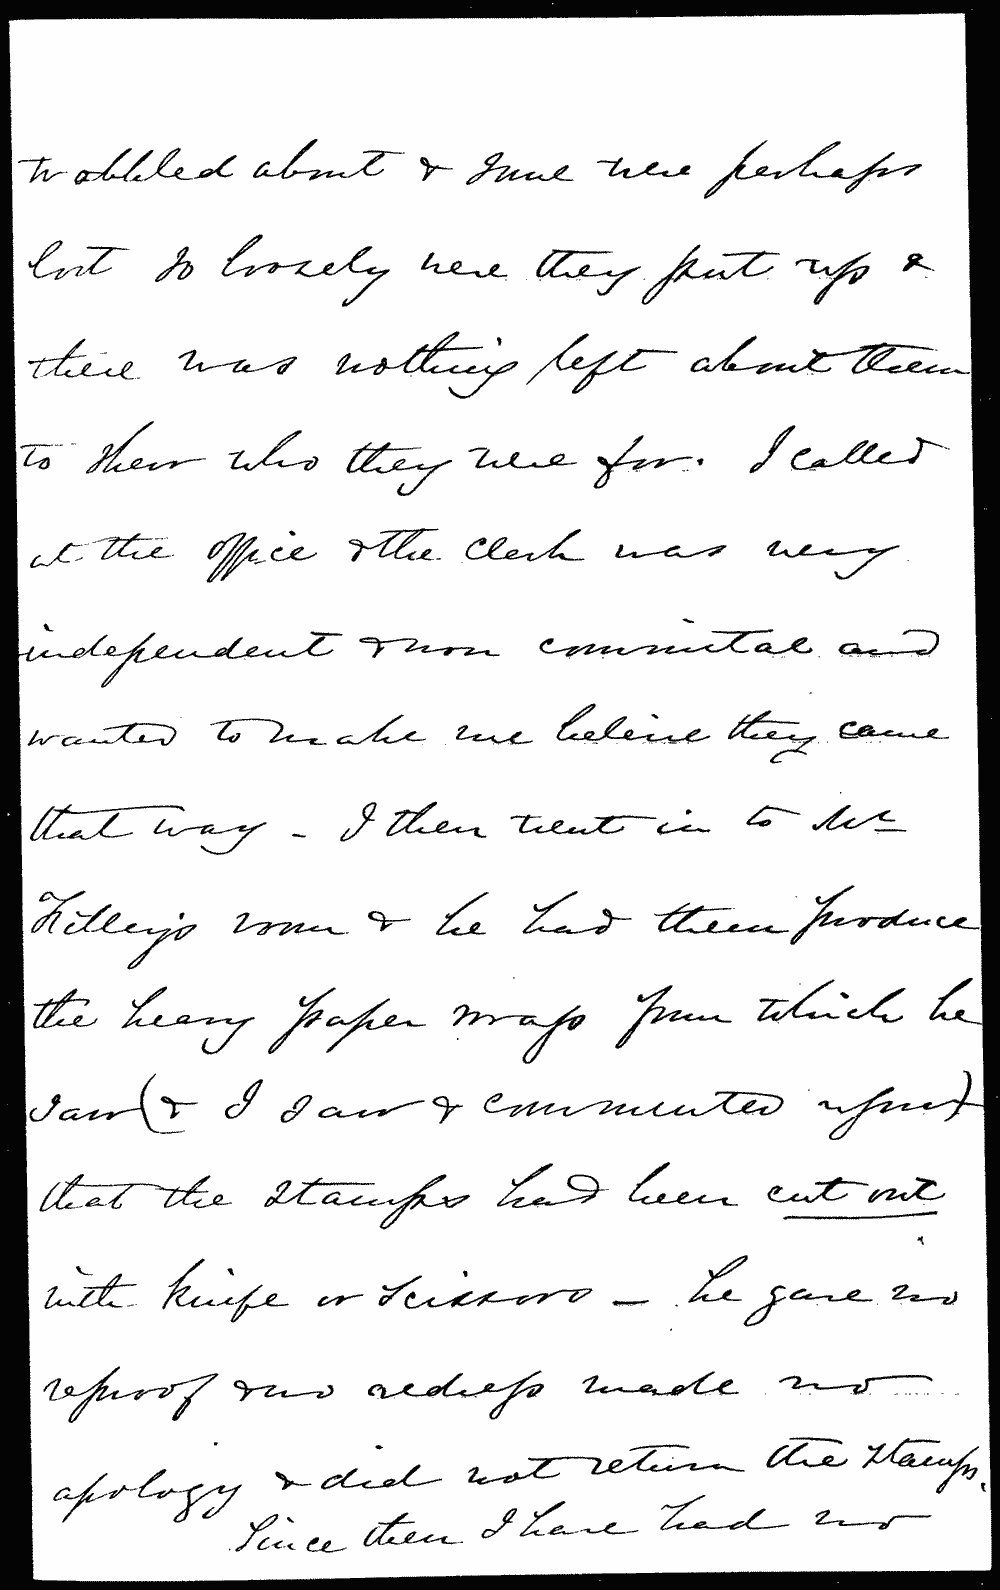 wobbled about & some were perhaps
lost so loosely were they put up &
there was nothing left about them
to shew who they were for. I called
at the office & the clerk was very
independent & non committal and
wanted to make me believe they came
that way - I then went in to Mr
room & he had them produce
the heavy paper wraps from which he
saw (& I saw & commented upon)
that the stamps had been cut out
with knife or scissors - he gave no
reproof & no redress made no
apology & did not return the stamps.
Since then I have had no